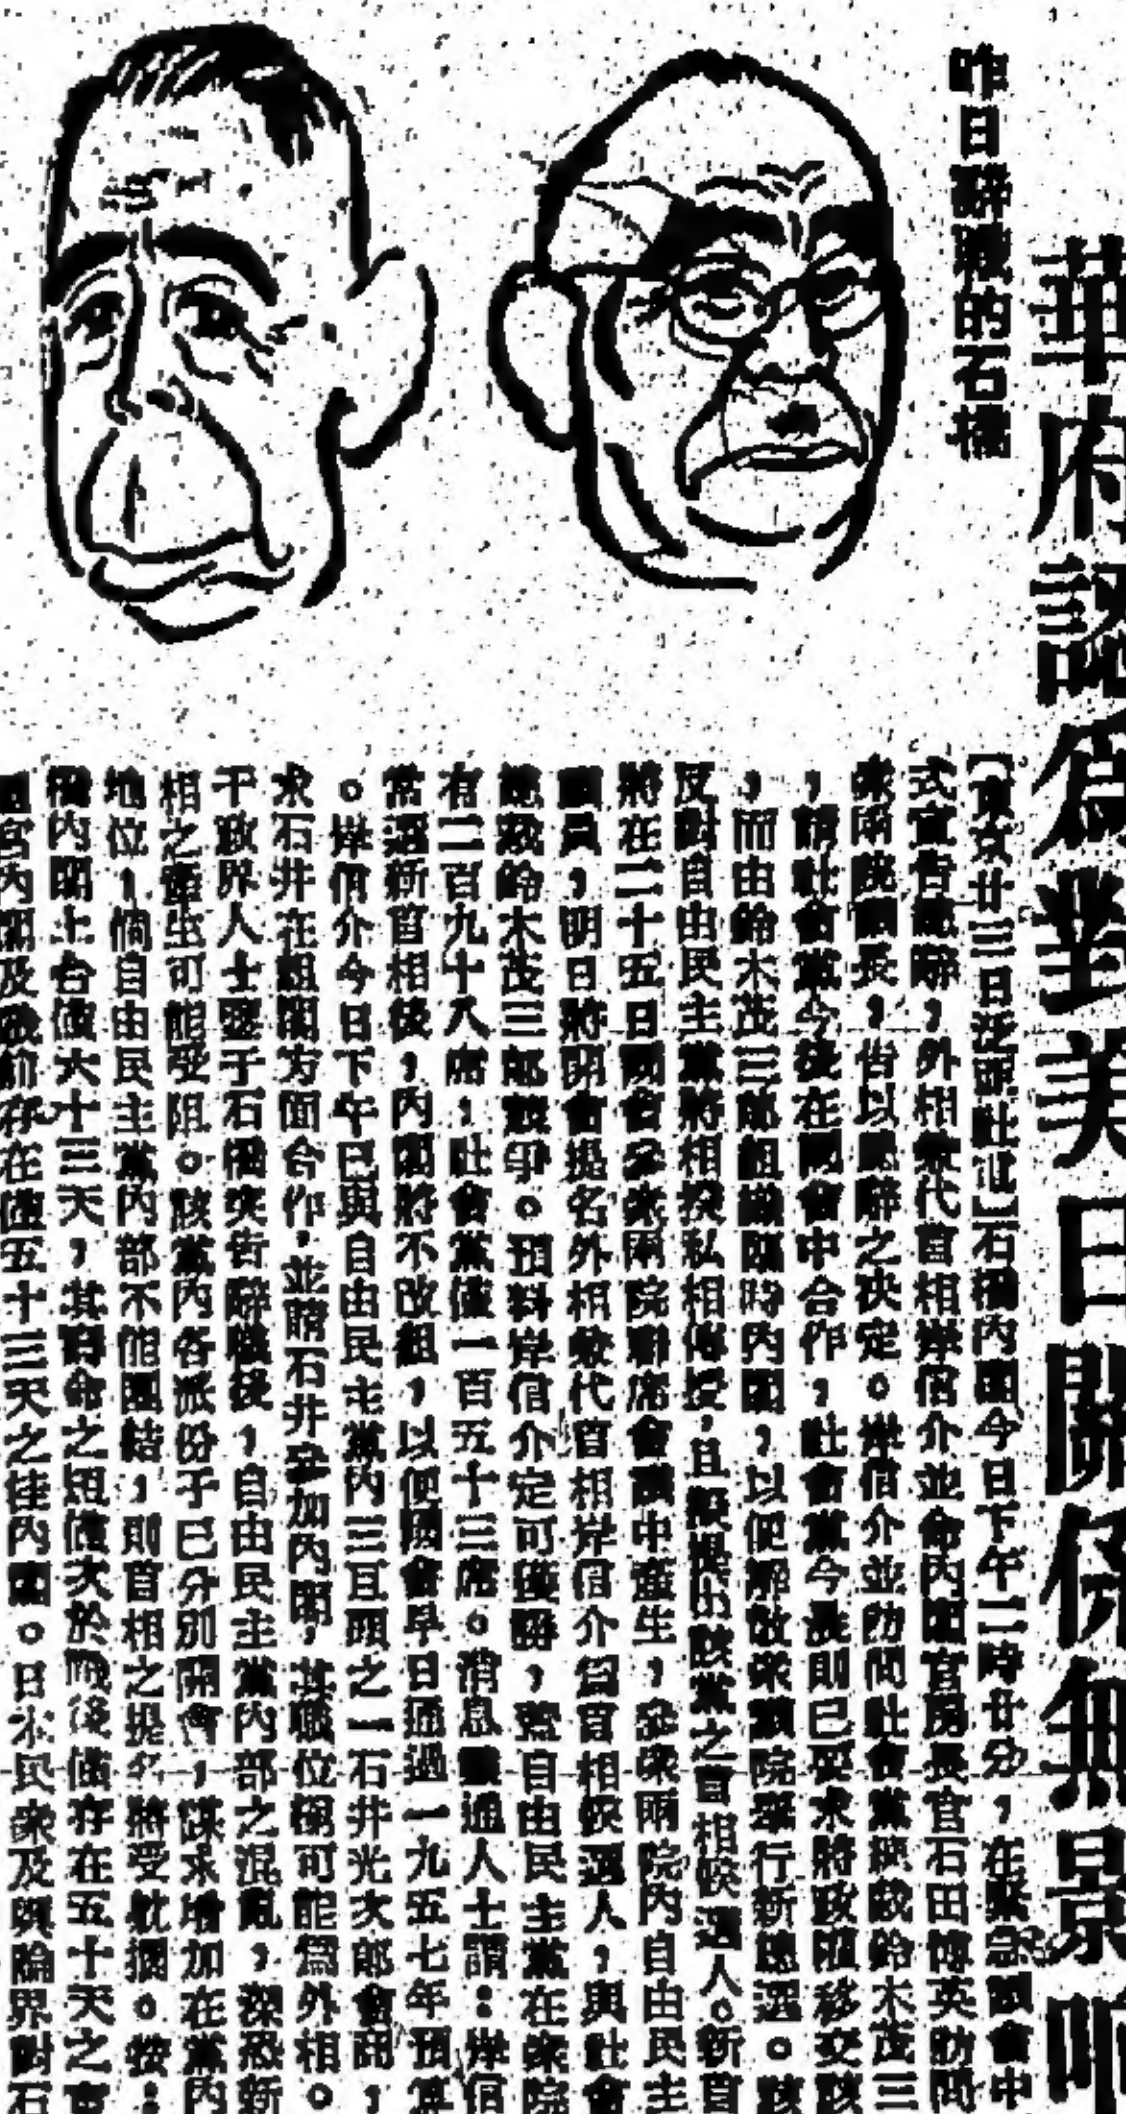 昨日辭職的石橋
華府認爲對美日關係無景响
【東京廿三日泛亞社電】石橋內閣今日下午二時廿分，在緊急議會中
式宣告總辭，外相兼代首相岸信介並命內閣官房長官石田博英訪問
衆兩院議長，告以總辭之決定。岸信介並訪問社會黨總裁鈴木茂三
，請社會黨今後在國會中合作，社會黨今晨則已要求將政權移交該
，而由鈴木茂三郎組織臨時內閣，以便解散衆議院舉行新總選。該
反對自由民主黨將相授私相傳授，且設提出該黨之首相候選人。新首
將在二十五日國會參衆兩院聯席會議中產生，參衆兩院內自由民主
議員，明日將開會提名外相兼代首相岸信介爲首相候選人，與社會
總裁鈴木茂三郎競爭。預料岸信介定可獲勝，蓋自由民主黨在衆院
有二百九十八席；社會黨僅一百五十三席。消息靈通人士謂：岸信
當選新首相後，內閣將不改組，以便國會早日通過一九五七年預算
。岸信介今日下午已與自由民主黨內三巨頭之一石井光次郎會商，
求石井在組閣方面合作，並請石井參加內閣，其職位極可能爲外相。
干政界人士鑒于石橋突告辭職後，自由民主黨內部之混亂，深恐新
相之產生可能受阻。該黨內各派份子已分別開會，謀求增加在黨內
地位，倘自由民主黨內部不能團結，則首相之提名將受耽擱。按：
橋內閣上台僅六十三天，其壽命之短僅次於戰後僅存在五十天之東
邇宮內閣及戰前存在僅五十三天之桂內閣。日本民衆及輿論界對石